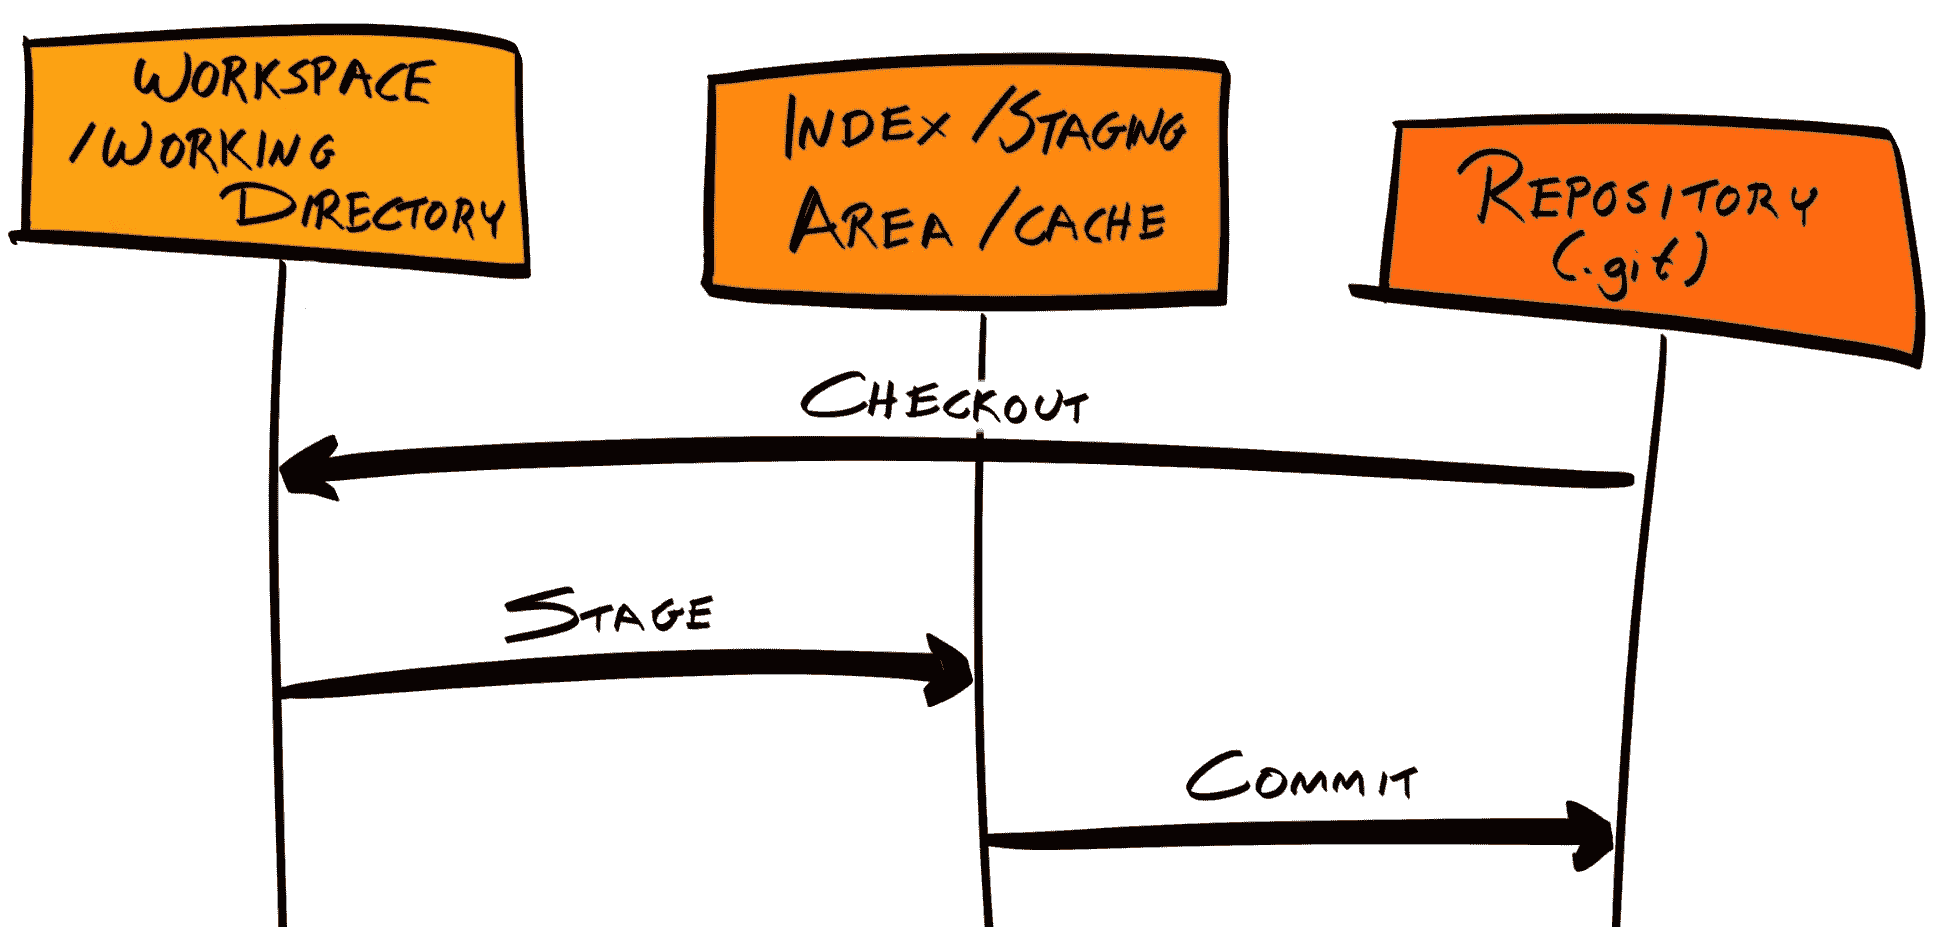 WORKSPACE
/WORKING
DIRECTORY
INDEX /STAGING
AREA /CACHE
REPOSITORY
(.git)
CHECKOUT
STAGE
COMMIT